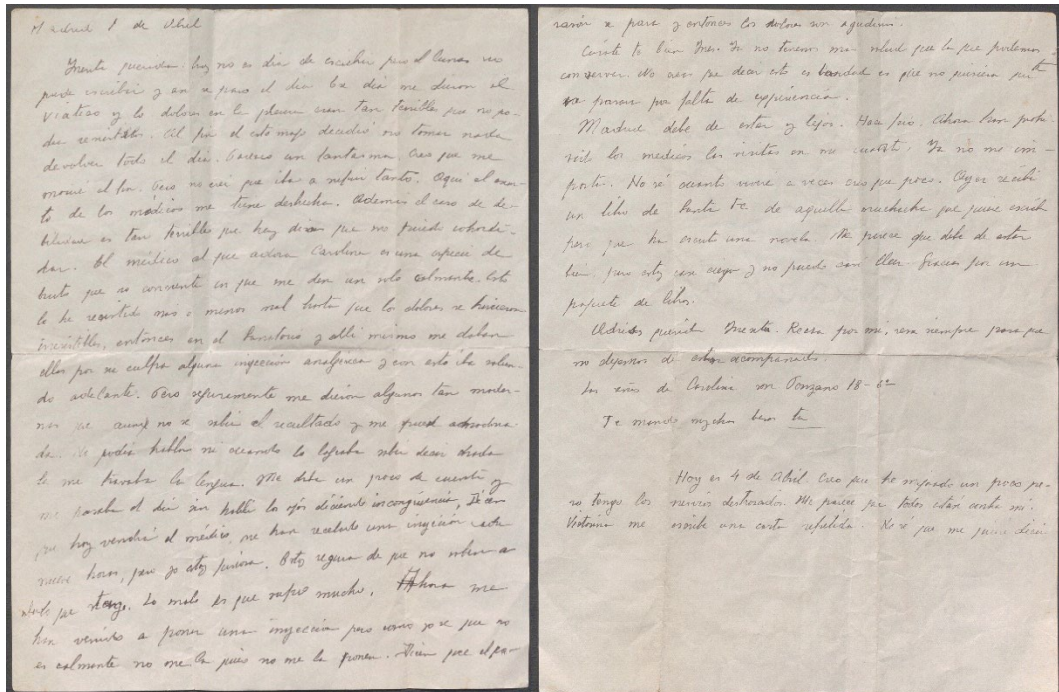 Madrid 1 de Abril
querida: hoy no es dia de escribir pero el lunes no
pude escribir y en se paso el dia. Ese dia me dieron el
Viático y los dolores en la pleura eran tan terribles que no po-
dia resistirlos. Al fin el estomago decidió no tomar nada
devolver todo el dia. Parezco un fantasma. Creo que me
moriré al fin. Pero no creí que iba a sufrir tanto. Aquí el
to de los medicos me tiene deshecha. Ademas el caso de de-
bilidad es tan terrible que hoy dicen que no puedo
El médico al que adora Carolina es una especie de
bruto que no consiente en que me den un solo calmante. Esto
lo he resistido mas o menos mal hasta que los dolores se hicieron
irresistibles, entonces en el Sanatorio y allí mismo me daban
ellos por su culpa alguna inyección analgésica y con esto iba
do adelante. Pero seguramente me dieron algunas tan moder-
nas que aunque no se sabia el resultado y me quedé
da. No podia hablar ni cuando lo lograba sabia decir nada
se me trababa la lengua. Me daba un poco de cuenta y
me pasaba el dia sin los ojos diciendo incongruencias. Dicen
que hoy vendrá el médico, me han recetado una inyección cada
nueve horas, pero yo estoy furiosa. Estoy segura de que no saben
que tengo. Lo malo es que sufro mucho. Ahora me
han venido a poner una inyección pero como yo se que no
es calmante no me la pues no me la ponen. Dicen que el co-
razón se para y entonces los dolores son agudisimos.
Cuida te bien Ines. Ya no tenemos mas salud que la que podamos
conservar. No creas que decir esto es bondad es que no quisiera que tu
pasaras por falta de experiencia.
Madrid debe de estar y lejos. Hace frio. Ahora han prohi-
bido los medicos las visitas en mi cuarto. Ya no me im-
porta. No sé cuanto viviré a veces creo que poco. Ayer recibí
un libro de de aquella muchacha que quiere escribir
pero que ha escrito una novela. Me parece que debe de estar
bien pero estoy casi ciega y no puedo casi leer. Gracias por un
paquete de libros.
Adios, querida. Reza por mí, reza siempre para que
no dejemos de estar acompañadas.
Las señas de Carolina son Ponzano 18-6º
Te mando muchos besos
Hoy es 4 de Abril. Creo que he mejorado un poco pe-
ro tengo los nervios destrozados. Me parece que todos están contra mi.
Victorina me escribe una carta. No sé que me quiere decir